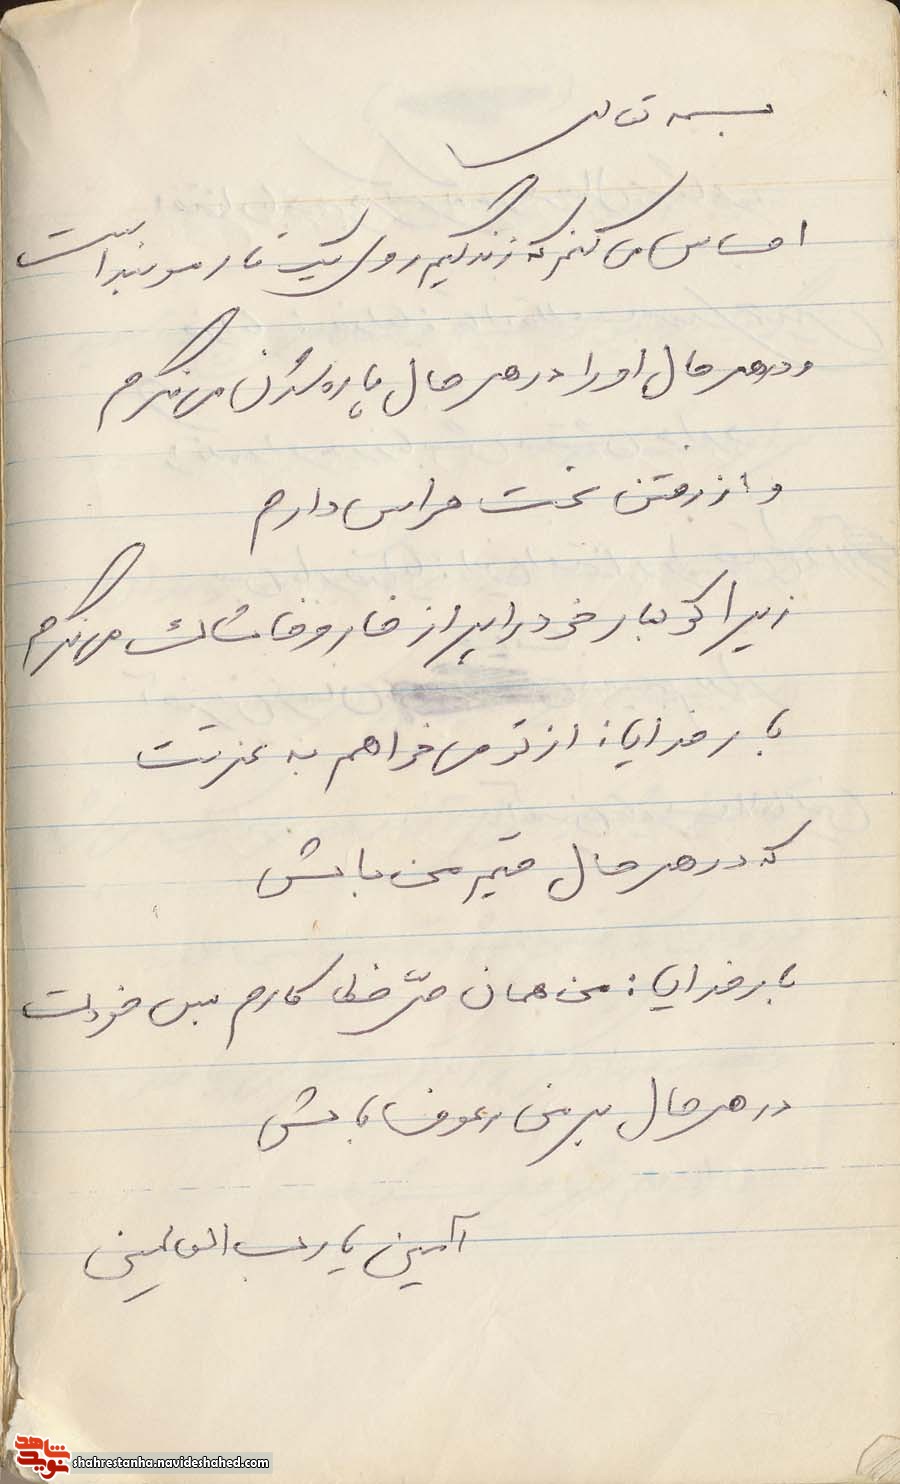 بسمه تعالی
احساس می کنم که زندگیم روی یک تار مو بند است
و در هر حال او را در هر حال پاره شدن می نگرم
و از رفتن سخت هراس دارم
زیرا کوله بار خود را پر از خار و خاشاک می نگرم
بار خدایا: از تو می خواهم به عزتت
که در هر حال قیم من باش
بار خدایا: من همان حر خطا کارم پس خودت
در هر حال بر من رئوف باش
آمین یا رب العالمین
نوید شاهد
shahrestanha.navideshahed.com